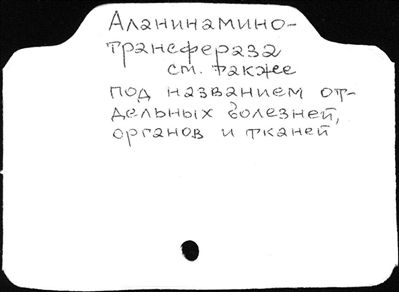 Аланинамино-
трансфераза
см. также
под названием от-
дельных болезней,
органов и тканей